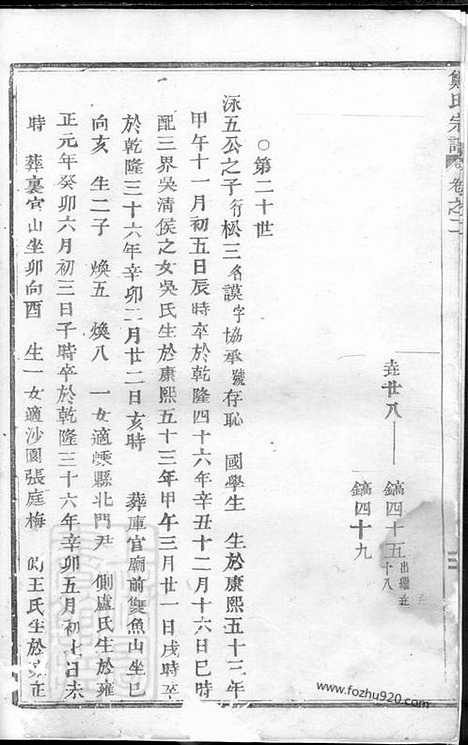 鄭氏宗譜 卷之二
垚廿八 鎬四十五 出繼垚十八
鎬四十九
○第二十世
泳五公之子行松三名謨字協承號存恥 國學生 生於康熙五十三年
甲午十一月初五日辰時卒於乾隆四十六年辛丑十二月十六日巳時
配三界吳清侯之女吳氏生於康熙五十三年甲午三月廿一日戌時卒
於乾隆三十六年辛卯二月廿二日亥時 葬庫官廟前雙魚山坐巳
向亥 生二子 煥五 煥八 一女適嵊縣北門尹 側盧氏生於雍
正元年癸卯六月初三日子時卒於乾隆三十六年辛卯五月初七日未
時 葬襄官山坐卯向酉 生一女適沙園張庭梅 王氏生於雍正
www.fozhu920.com